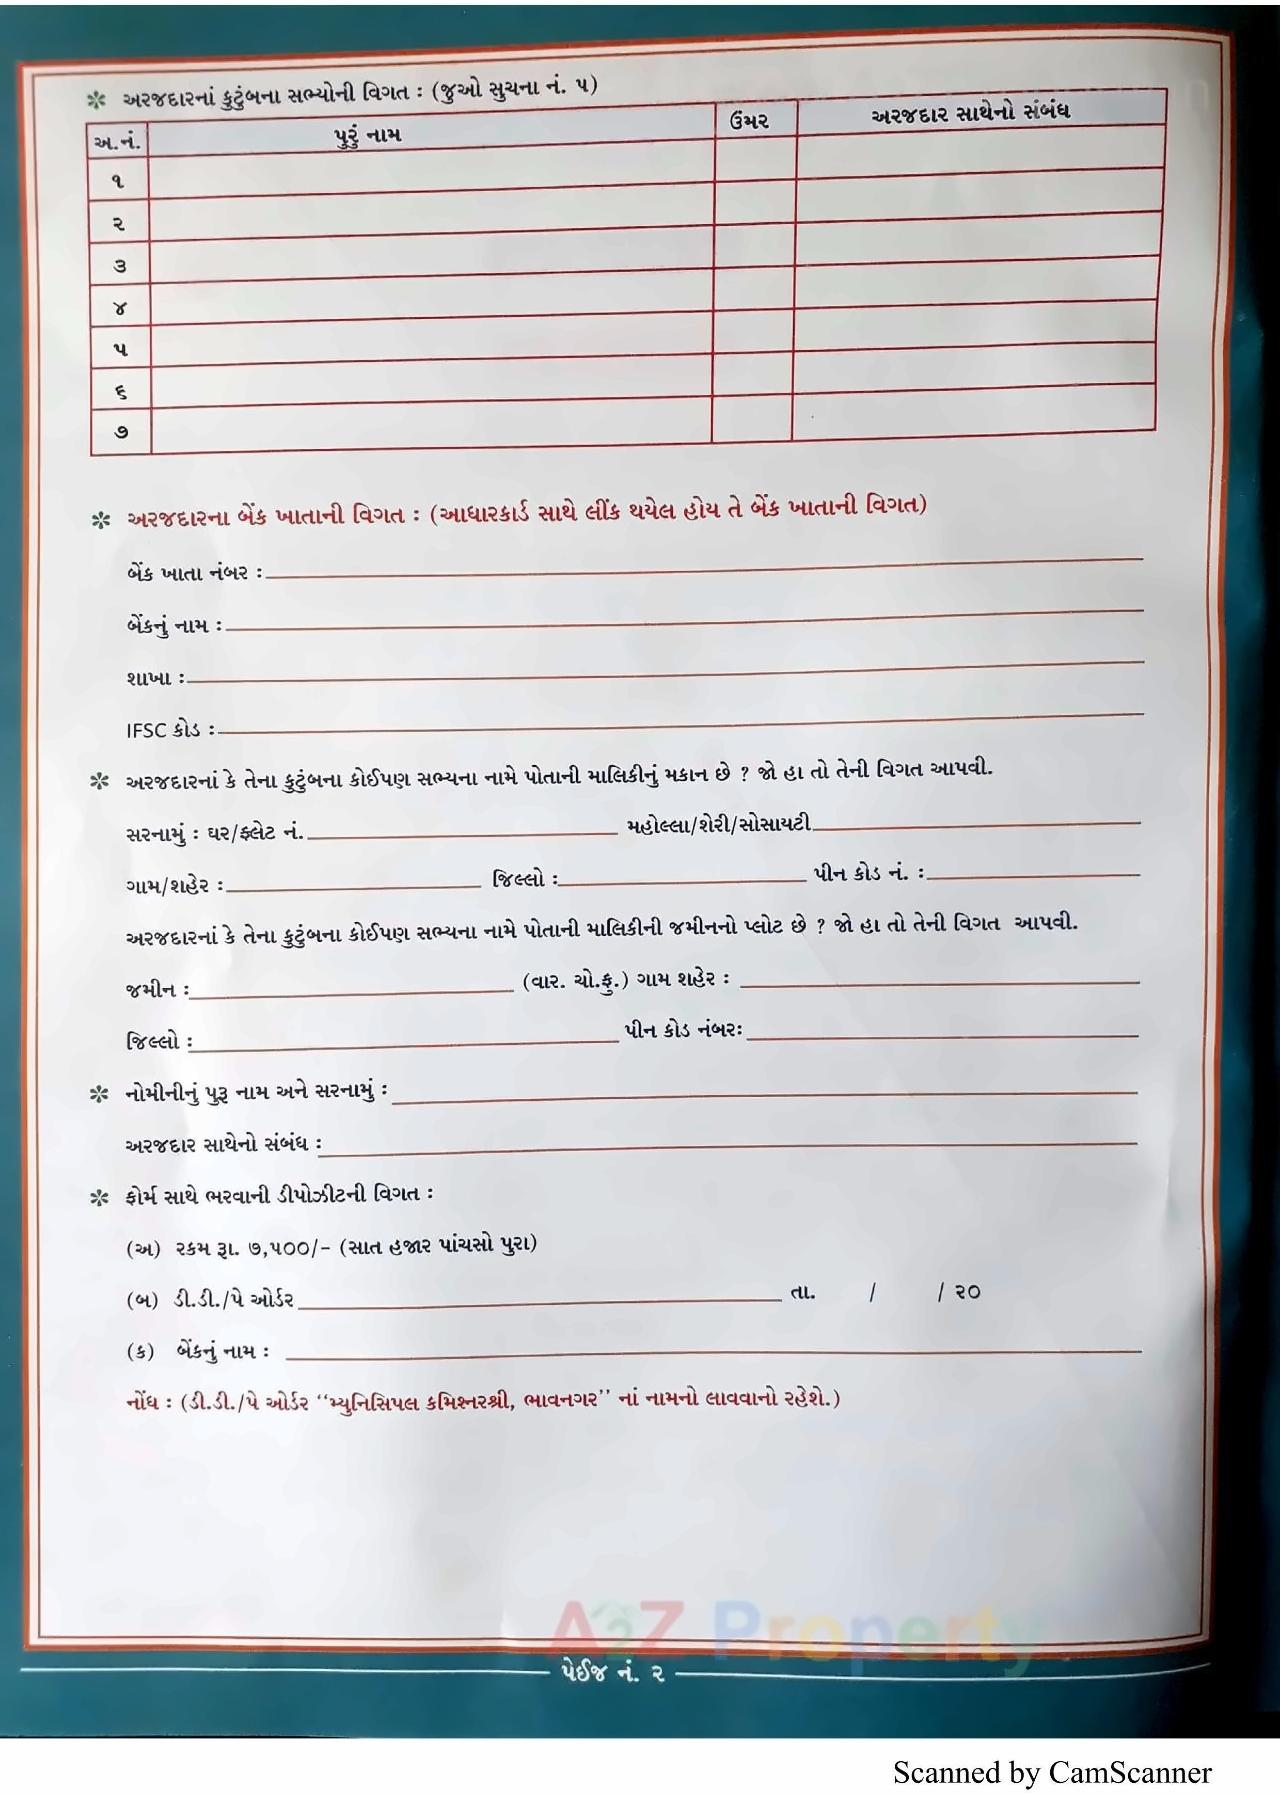 ❇ અરજદારનાં કુટુંબના સભ્યોની વિગત : (જુઓ સુચના નં. ૫)
અ.નં. પુરું નામ ઉંમર અરજદાર સાથેનો સંબંધ
૧
૨
૩
૪
૫
૬
૭
❇ અરજદારના બેંક ખાતાની વિગત : (આધારકાર્ડ સાથે લીંક થયેલ હોય તે બેંક ખાતાની વિગત)
બેંક ખાતા નંબર :
બેંકનું નામ :
શાખા :
IFSC કોડ :
❇ અરજદારનાં કે તેના કુટુંબના કોઈપણ સભ્યના નામે પોતાની માલિકીનું મકાન છે ? જો હા તો તેની વિગત આપવી.
સરનામું : ઘર/ફ્લેટ નં. મહોલ્લા/શેરી/સોસાયટી
ગામ/શહેર : જિલ્લો : પીન કોડ નં. :
અરજદારનાં કે તેના કુટુંબના કોઈપણ સભ્યના નામે પોતાની માલિકીની જમીનનો પ્લોટ છે ? જો હા તો તેની વિગત આપવી.
જમીન : (વાર. ચો.ફુ.) ગામ શહેર :
જિલ્લો : પીન કોડ નંબર:
❇ નોમીનીનું પુરૂ નામ અને સરનામું :
અરજદાર સાથેનો સંબંધ :
❇ ફોર્મ સાથે ભરવાની ડીપોઝીટની વિગત :
(અ) રકમ રૂા. ૭,૫૦૦/- (સાત હજાર પાંચસો પુરા)
(બ) ડી.ડી./પે ઓર્ડર તા. / / ૨૦
(ક) બેંકનું નામ :
નોંધ : (ડી.ડી./પે ઓર્ડર “મ્યુનિસિપલ કમિશ્નરશ્રી, ભાવનગર” નાં નામનો લાવવાનો રહેશે.)
A2Z Property
પેઈજ નં. ૨
Scanned by CamScanner